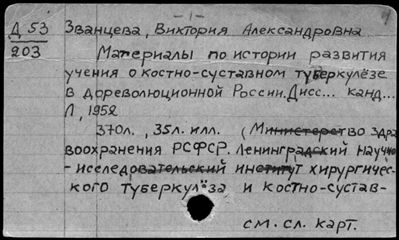 - 1 -
Д 53 Званцева, Виктория Александровна
203 Материалы по истории развития
учения о костно-суставном туберкулёзе
в дореволюционной России. Дисс... канд...
Л, 1952
370л., 35л. илл. (Министерство здра-
воохранения РСФСР. Ленинградский научно
-исследовательский институт хирургичес-
кого туберкулёза и костно-сустав-
см. сл. карт.